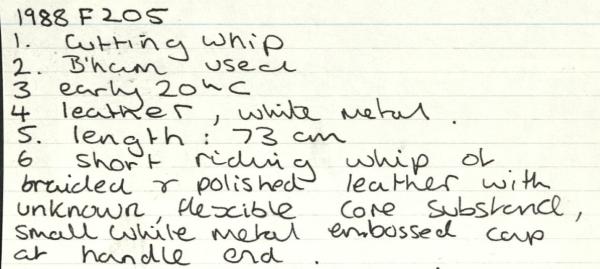 1988 F 205
1. Cutting whip
2. B'ham used
3 early 20th C
4 leather, white metal.
5. length: 73 cm
6 short riding whip of
braided & polished leather with
unknown, flexible core substance,
small white metal embossed cap
at handle end.